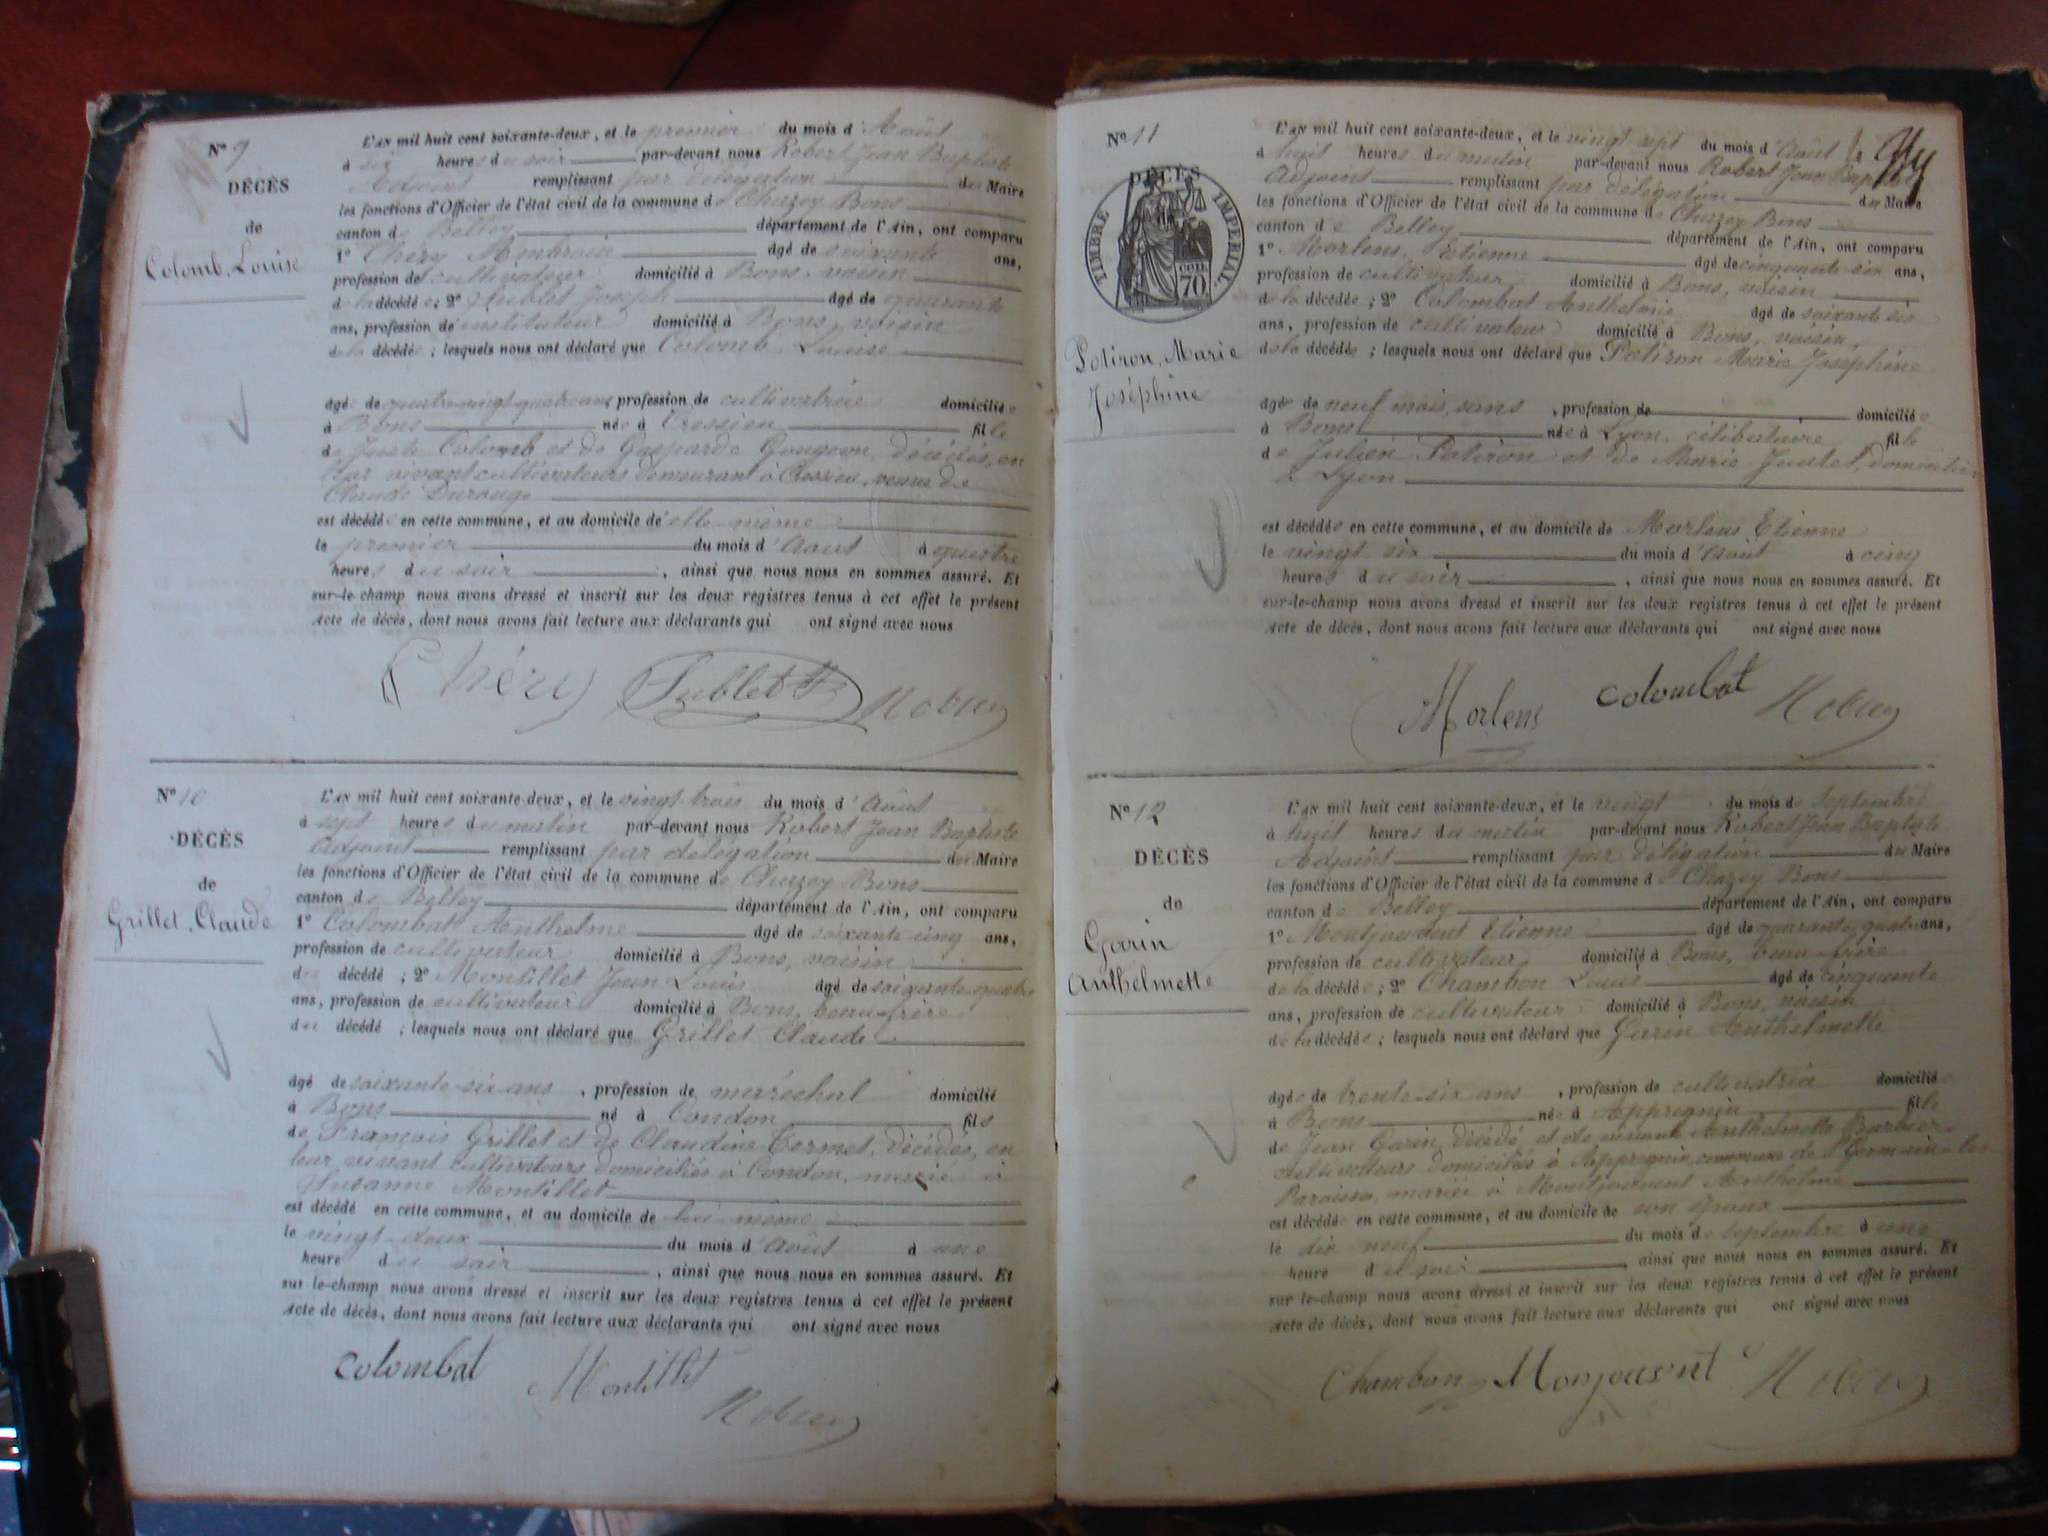 Nº 9
DÉCÈS
de
Colomb, Louise
L'AN mil huit cent soixante-deux, et le premier du mois d'Août
à six heures du soir par-devant nous Robert Jean Baptiste
Adjoint remplissant par délégation du Maire
les fonctions d'Officier de l'état civil de la commune de Chazey Bons
canton de Belley département de l'Ain, ont comparu
1º Chéry Ambroise agé de soixante ans,
profession de cultivateur domicilié à Bons, voisin
de la décédée; 2º Sublet Joseph agé de quarante
ans, profession de instituteur domicilié à Bons, voisin
de la décédée; lesquels nous ont déclaré que Colomb, Louise
âgée de quatre-vingt-quatre ans, profession de cultivatrice domiciliée
à Bons née à Cressieu fille
de Juste Colomb et de Gasparde Gougeon, décédés, en
leur vivant cultivateurs demeurant à Cressieu, veuve de
Claude
est décédée en cette commune, et au domicile d'elle-même
le premier du mois d'Août à quatre
heures du soir, ainsi que nous nous en sommes assuré. Et
sur-le-champ nous avons dressé et inscrit sur les deux registres tenus à cet effet le présent
Acte de décès, dont nous avons fait lecture aux déclarants qui ont signé avec nous
Chéry Sublet Jh Robert
Nº 10
DÉCÈS
de
Grillet, Claude
L'AN mil huit cent soixante-deux, et le vingt-trois du mois d'Août
à sept heures du matin par-devant nous Robert Jean Baptiste
Adjoint remplissant par délégation du Maire
les fonctions d'Officier de l'état civil de la commune de Chazey Bons
canton de Belley département de l'Ain, ont comparu
1º Colombat Anthelme âgé de soixante-cinq ans,
profession de cultivateur domicilié à Bons, voisin
du décédé; 2º Montillet Jean Louis âgé de soixante-quatre
ans, profession de cultivateur domicilié à Bons, beau-frère
du décédé; lesquels nous ont déclaré que Grillet Claude
âgé de soixante-six ans, profession de maréchal domicilié
à Bons né à Condon fils
de François Grillet et de Claudine Termet, décédés, en
leur vivant cultivateurs domiciliés à Condon, marié à
Suzanne Montillet
est décédé en cette commune, et au domicile de lui-même
le vingt-deux du mois d'Août à une
heure du soir, ainsi que nous nous en sommes assuré. Et
sur-le-champ nous avons dressé et inscrit sur les deux registres tenus à cet effet le présent
Acte de décès, dont nous avons fait lecture aux déclarants qui ont signé avec nous
Colombat Montillet Robert
Nº 11
DÉCÈS
de
TIMBRE IMPERIAL
CEN. 70
Potiron, Marie
Joséphine
L'AN mil huit cent soixante-deux, et le vingt sept du mois d'Août
à huit heures du matin par-devant nous Robert Jean Baptiste
Adjoint remplissant par délégation du Maire
les fonctions d'Officier de l'état civil de la commune de Chazey Bons
canton de Belley département de l'Ain, ont comparu
1º Morlens, Etienne âgé de cinquante-six ans,
profession de cultivateur domicilié à Bons, voisin
de la décédée; 2º Colombat Anthelme agé de soixante six
ans, profession de cultivateur domicilié à Bons, voisin
de la décédée; lesquels nous ont déclaré que Potiron Marie Joséphine
âgée de neuf mois, sans, profession de domiciliée
à Bons née à Lyon, célibataire fille
de Julien Potiron et de Marie Judet, domiciliés
à Lyon
est décédée en cette commune, et au domicile de Morlens Etienne
le vingt six du mois d'Août à cinq
heures du soir, ainsi que nous nous en sommes assuré. Et
sur-le-champ nous avons dressé et inscrit sur les deux registres tenus à cet effet le présent
Acte de décès, dont nous avons fait lecture aux déclarants qui ont signé avec nous
Morlens Colombat Robert
Nº 12
DÉCÈS
de
Garin
Anthelmette
L'AN mil huit cent soixante-deux, et le vingt du mois de Septembre
à huit heures du matin par-devant nous Robert Jean Baptiste
Adjoint remplissant par délégation du Maire
les fonctions d'Officier de l'état civil de la commune de Chazey Bons
canton de Belley département de l'Ain, ont comparu
1º Montjouvent Etienne âgé de quarante quatre ans,
profession de cultivateur domicilié à Bons, beau-frère
de la décédée; 2º Chambon Louis âgé de cinquante
ans, profession de cultivateur domicilié à Bons, voisin
de la décédée; lesquels nous ont déclaré que Garin Anthelmette
âgée de trente-six ans, profession de cultivatrice domiciliée
à Bons née à Appregnin fille
de Jean Garin, décédé et de vivante Anthelmette Barbier
cultivateurs domiciliés à Appregnin, commune de St Germain-les
Paroisses, mariée à Montjouvent Anthelme
est décédée en cette commune, et au domicile de son époux
le dix neuf du mois de septembre à une
heure du soir, ainsi que nous nous en sommes assuré. Et
sur-le-champ nous avons dressé et inscrit sur les deux registres tenus à cet effet le présent
Acte de décès, dont nous avons fait lecture aux déclarants qui ont signé avec nous
Chambon Monjouvent Robert